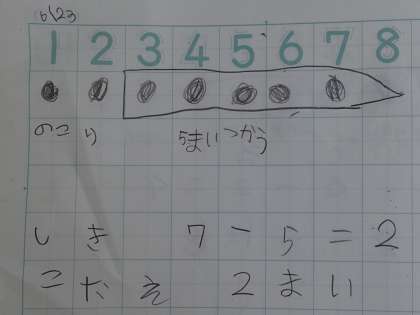 6\23
1 2 3 4 5 6 7 8
のこり 5まいつかう
しき 7-5=2
こたえ 2まい